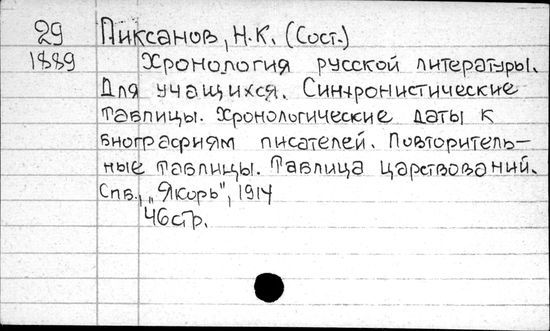 29 Пиксанов, Н.К. (Сост.)
1889 Хронология русской литературы.
Для учащихся. Синхронистические
таблицы. Хронологические даты к
биографиям писателей. Повторитель-
ные таблицы. Таблица царствований.
Спб., „Якорь", 1914
46стр.